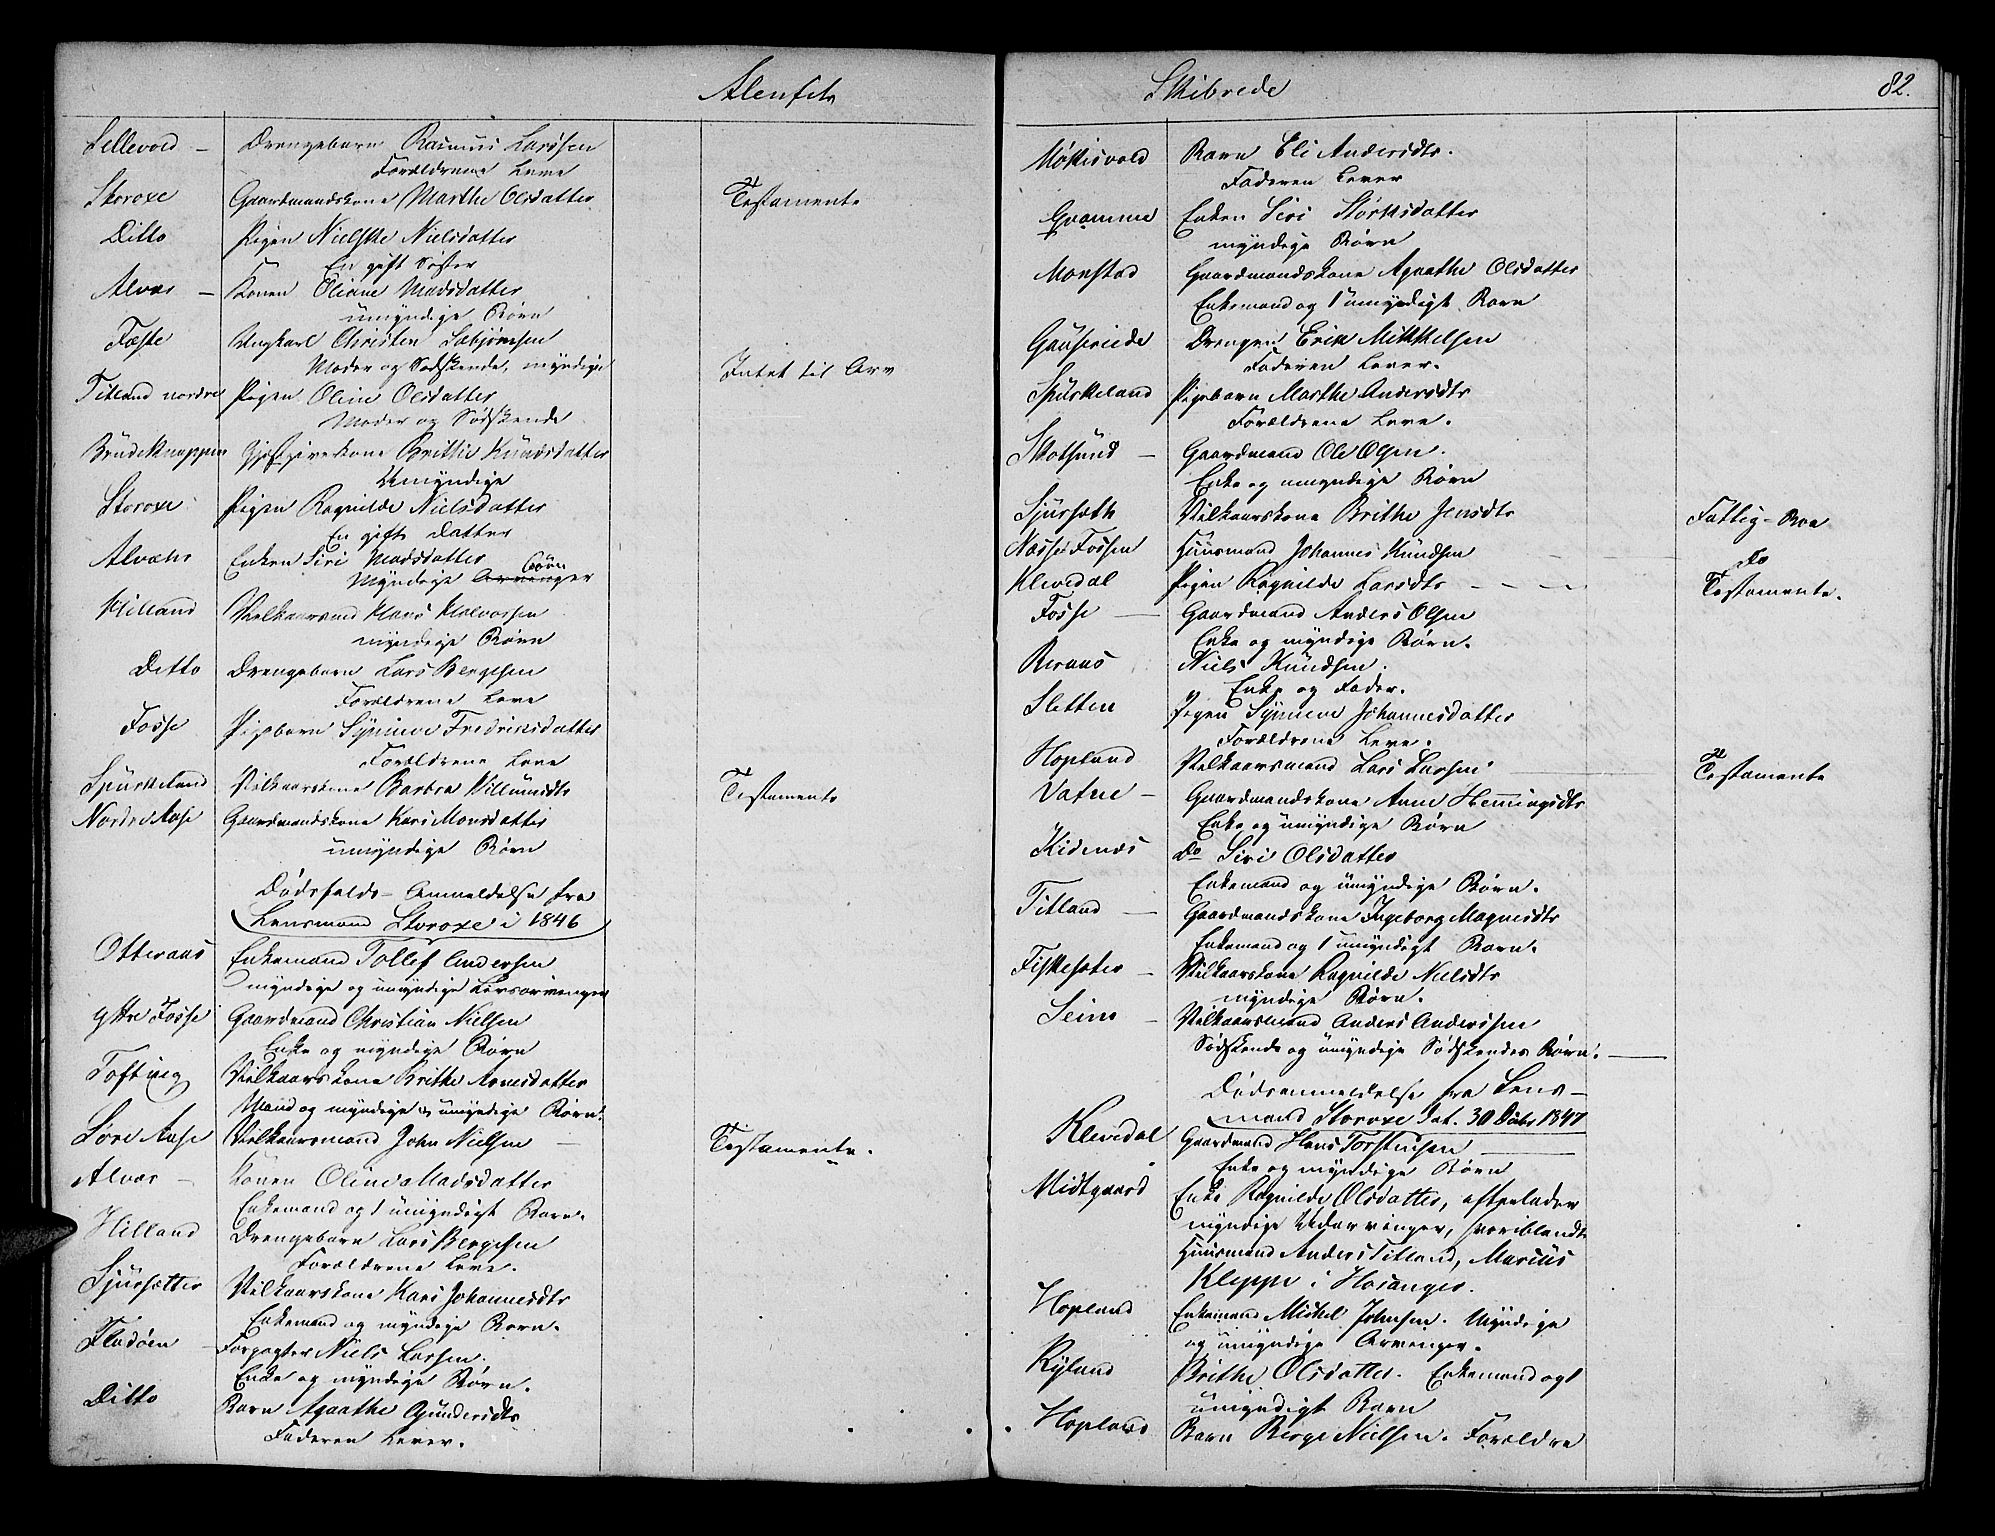 Alenfits
Sellevold – Drengebarn Rasmus Larssen
Forældrene Leve
Storoxe Gaardmandskone Marthe Olsdatter Testamente
Ditto Pigen Nielske Nielsdatter
En gift Søster
Alvær – Konen Oliane Madsdatter
umyndige Børn
Fæste Ungkarl Christen Sæbjørnsen
Moder og Sødskende, myndige Intet til Arv
Titland nordre Pigen Oline Olsdatter
Moder og Sødskende
Brudeknappen Gjestgiverkone Brithe Knudsdatter
Umyndige
Storoxe Pigen Ragnilde Nielsdatter
En gift Datter
Alvær Enken Siri Madsdatter
Myndige Arvinger Børn
Hilland Vilkaarsmd Hans Halvorsen
myndige Børn
Ditto Drengebarn Lars Bergesen
Forældrene Leve
Fosse Pigebarn Synneve Fredriksdatter
Forældrene Leve
Spurkeland Vilkaarskone Barbra Villumsdtr Testamente
Nordre Aase Gaardmandskone Kari Monsdatter
umyndige Børn
Dødsfalds-Anmeldelse fra
Lensmand Storoxe i 1846
Otteraas Enkemand Tollef Andersen
myndige og umyndige Livsarvinger
Yttre Fosse Gaardmand Christian Nielsen
Enke og myndige Børn
Tofting Vilkaarskone Brithe Arnesdatter
Mand og myndige og umyndige Børn.
Søre Aase Vilkaarsmand John Nielsen – Testamente.
Alvær – Konen Olina Madsdatter
Enkemand og 1 umyndigt Barn.
Hilland Drengebarn Lars Bergesen
Forældrene Leve.
Sjursætter Vilkaarskone Kari Johannesdtr
Enkemand og myndige Børn.
Fladøen – Forpagter Niels Larsen.
Enke og myndige Børn.
Ditto Barn Agathe Gundersdtr
Faderen Lever.
Skibrede 82.
Møkisvold Barn Eli Andersdtr.
Faderen Lever
Gramme Enken Siri Størksdatter
myndige Børn
Monstad Gaardmandskone Agathe Olsdatter
Enkemand og 1 umyndigt Barn
Gausereide Drengen Erik Mikkelsen
Faderen Lever.
Spurkeland Pigebarn Marthe Andersdtr
Forældrene Leve.
Skotsund – Gaardmand Ole Olsen.
Enke og umyndige Børn
Sjursæth Vilkaarskone Brithe Jensdtr Fattig-Bo
Nasse Fossen Huusmand Johannes Knudsen Do
Klevedal Pigen Ragnilde Larsdtr – – – Testamente.
Fosse – Gaardmand Anders Olsen
Enke og myndige Børn.
Braas Niels Knudsen.
Enke og Fader.
Sletten Pigen Synneve Johannesdatter
Forældrene Leve.
Hopland Vilkaarsmand Lars Larsen – Testamente
Vatne – Gaardmandskone Anne Henningsdtr
Enke og umyndige Børn
Kidenæs Do Siri Olsdatter
Enkemand og umyndige Børn.
Titland – Gaardmandskone Ingeborg Magnesdtr
Enkemand og 1 umyndigt Barn.
Fiskesæter – Vilkaarskone Ragnilde Nielsdtr
myndige Børn.
Seim – Vilkaarsmand Anders Anderssen
Sødskende og umyndige Sødskendes Børn. –
Dødsanmeldelse fra Lens-
mand Storoxe Dat. 30 Octbr 1847
Klevedal Gaardmand Hans Torstensen –
Enke og myndige Børn
Midtgaard Enke Ragnilde Olsdatter, efterlader
myndige Udarvinger, hvoriblandt
Huusmand Anders Titland, Marius
Kleppe i Hosanger.
Hopland Enkemand Mickel Johnsen. Myndige
og umyndige Arvinger.
Ryland Brithe Olsdatter. Enkemand og 1
umyndigt Barn
Hopland Barn Berge Nielsen. Forældre